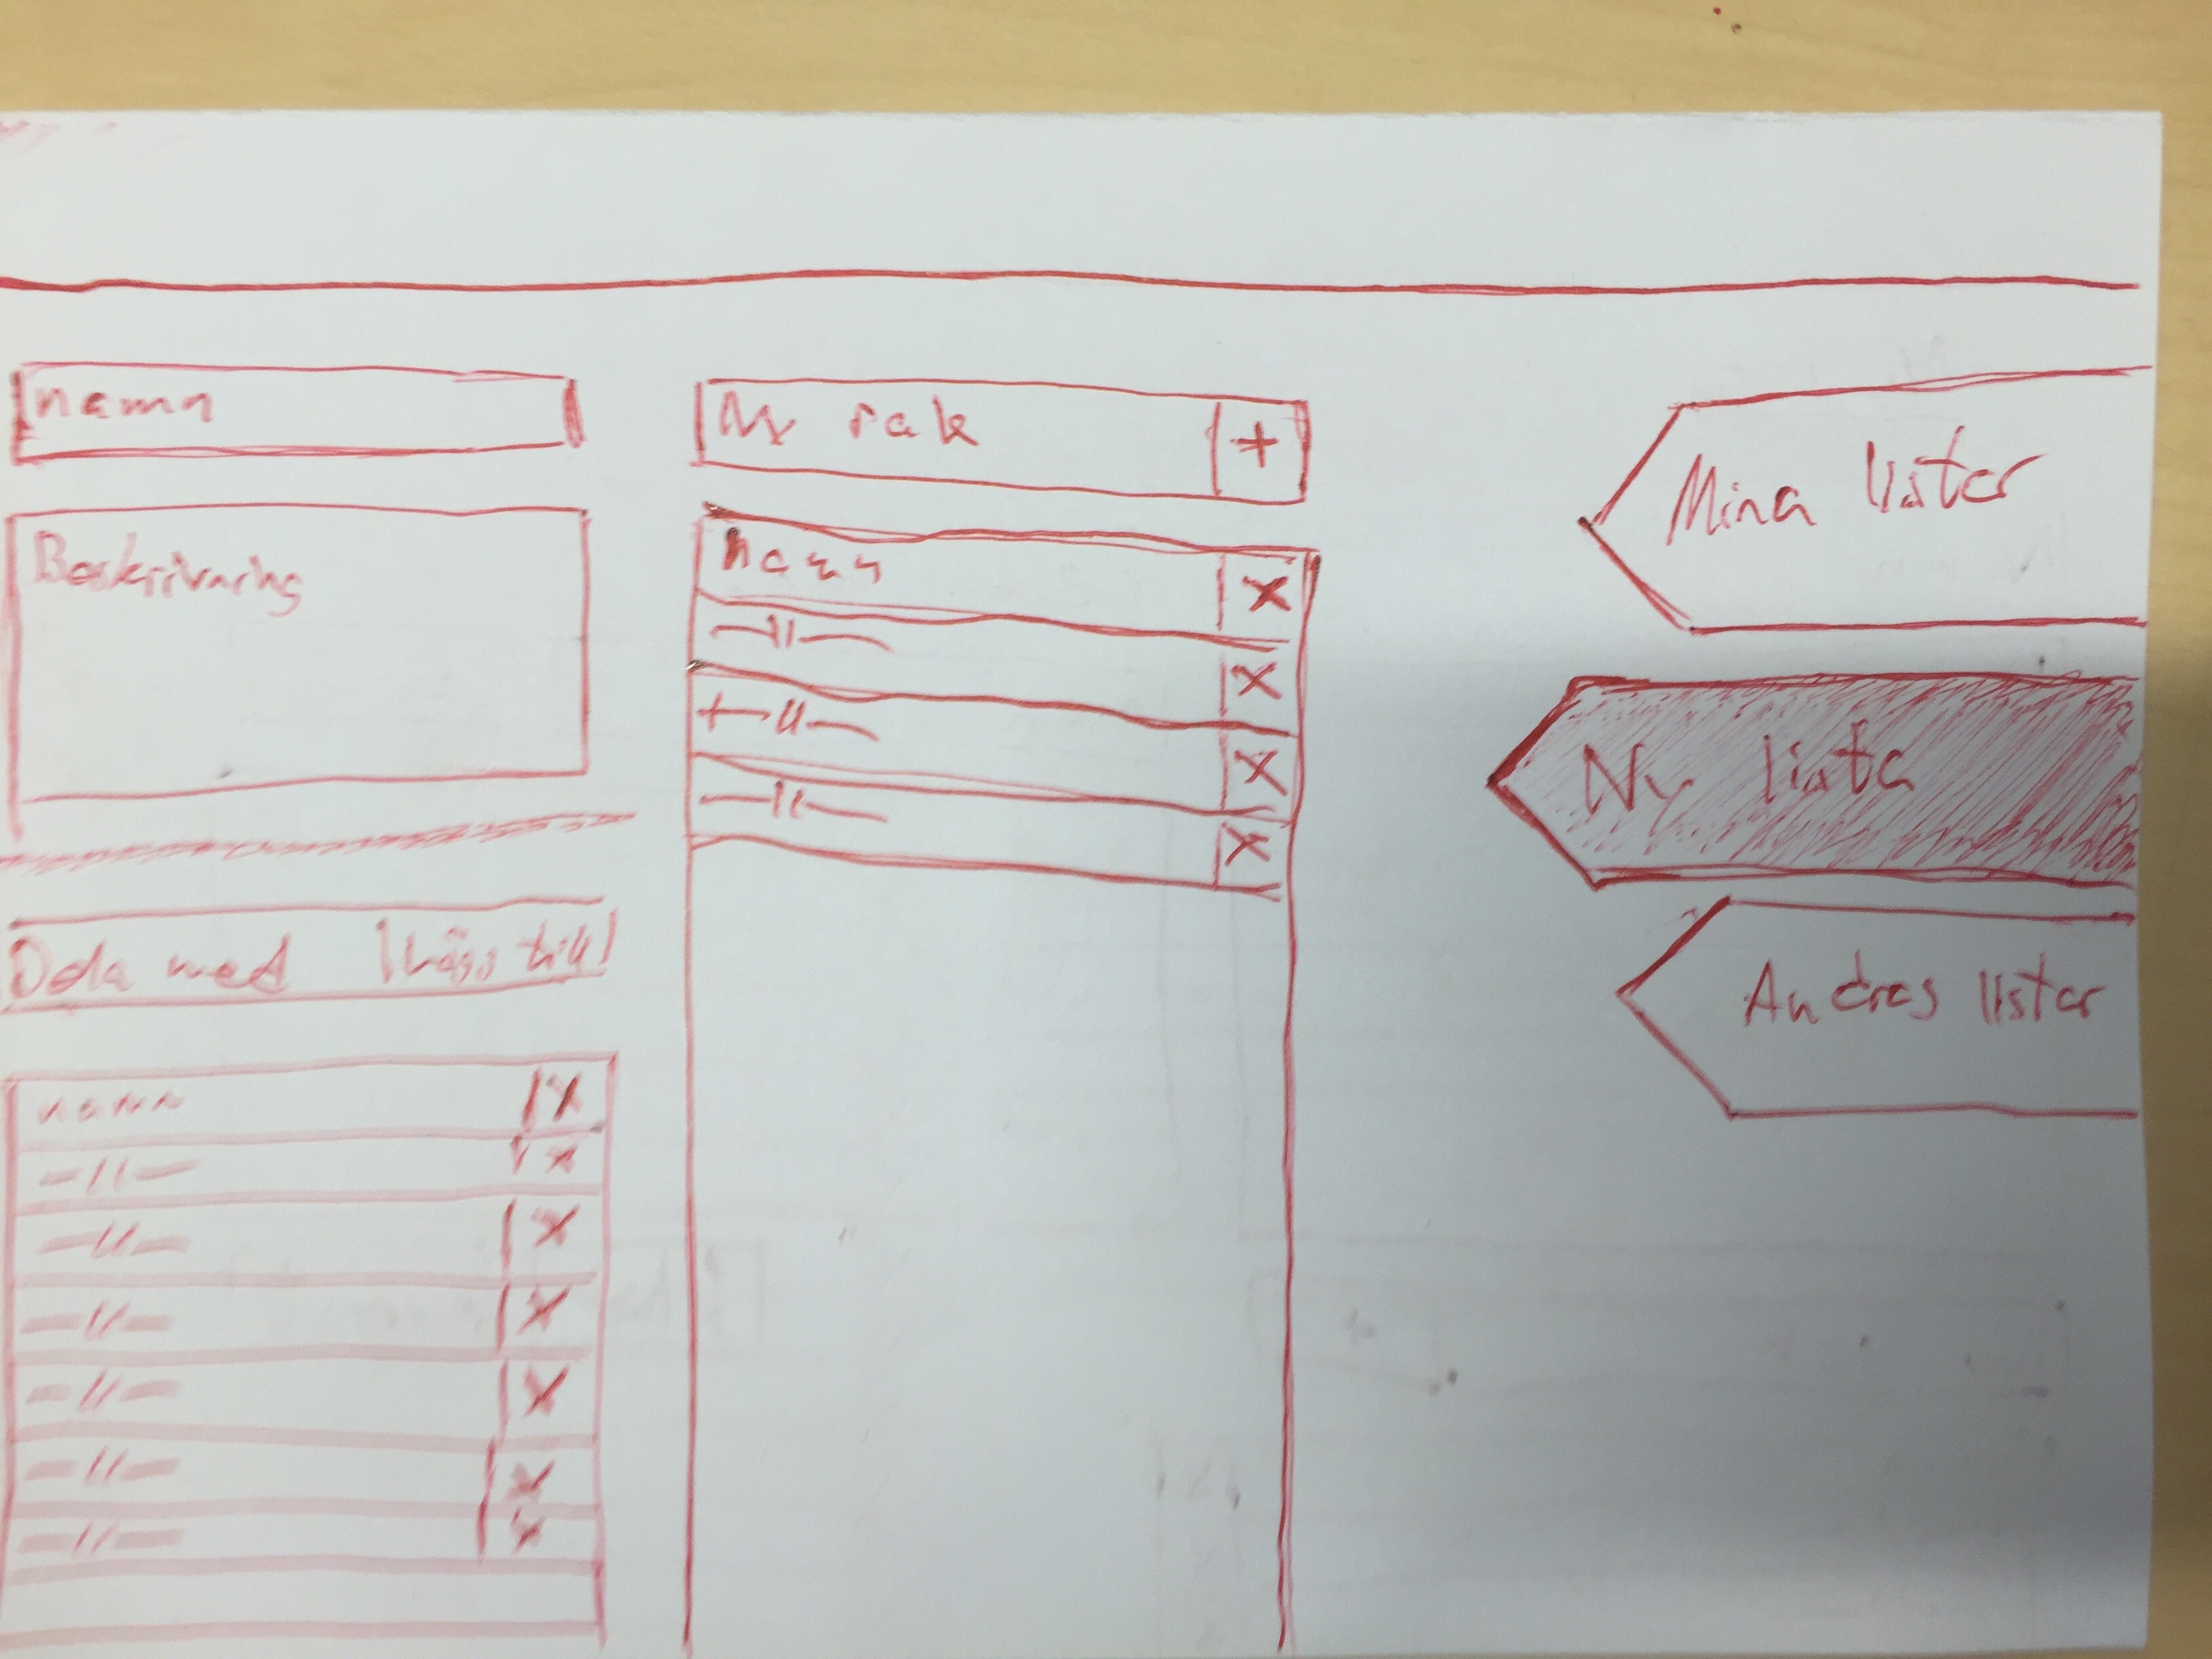 namn
Beskrivning
Dela med Lägg till
namn X
—||— X
—||— X
—||— X
—||— X
—||— X
—||— X
Ny sak +
namn X
—||— X
—||— X
—||— X
Mina listor
Ny lista
Andras listor